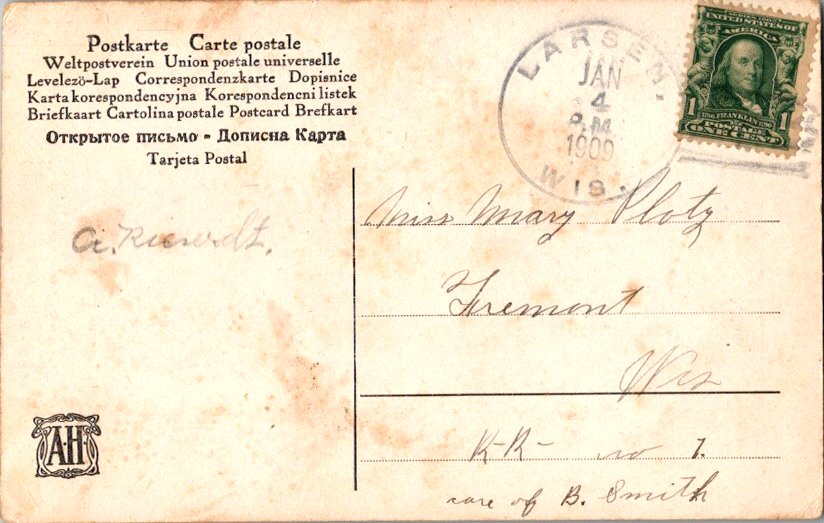 Postkarte Carte postale
Weltpostverein Union postale universelle
Levelezö-Lap Correspondenzkarte Dopisnice
Karta korespondencyjna Korespondencni listek
Briefkaart Cartolina postale Postcard Brefkart
Открытое письмо - Дописна Карта
Tarjeta Postal
LARSEN,
JAN
4
P.M.
1909
WIS.
UNITED STATES OF
AMERICA
1 1
1706 FRANKLIN 1790
POSTAGE
ONE CENT
Miss Mary Plotz
Fremont
Wis
R-R- no 1.
care of B. Smith
A.
A.H.